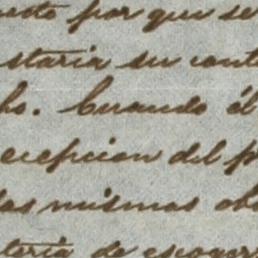 por que se
staria su cont
ho. Cuando él
ecepcion del p
las mismas ob
teria de escoger